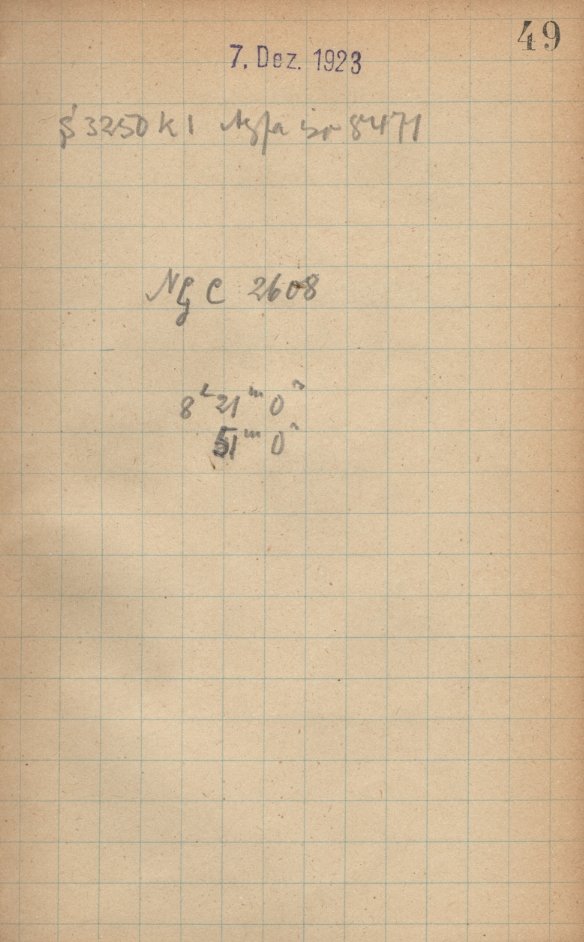 49
7. Dez. 1923
3250 K 1 Agfa 8471
NGC 2608
8ʰ 21ᵐ 0ˢ
51ᵐ 0ˢ